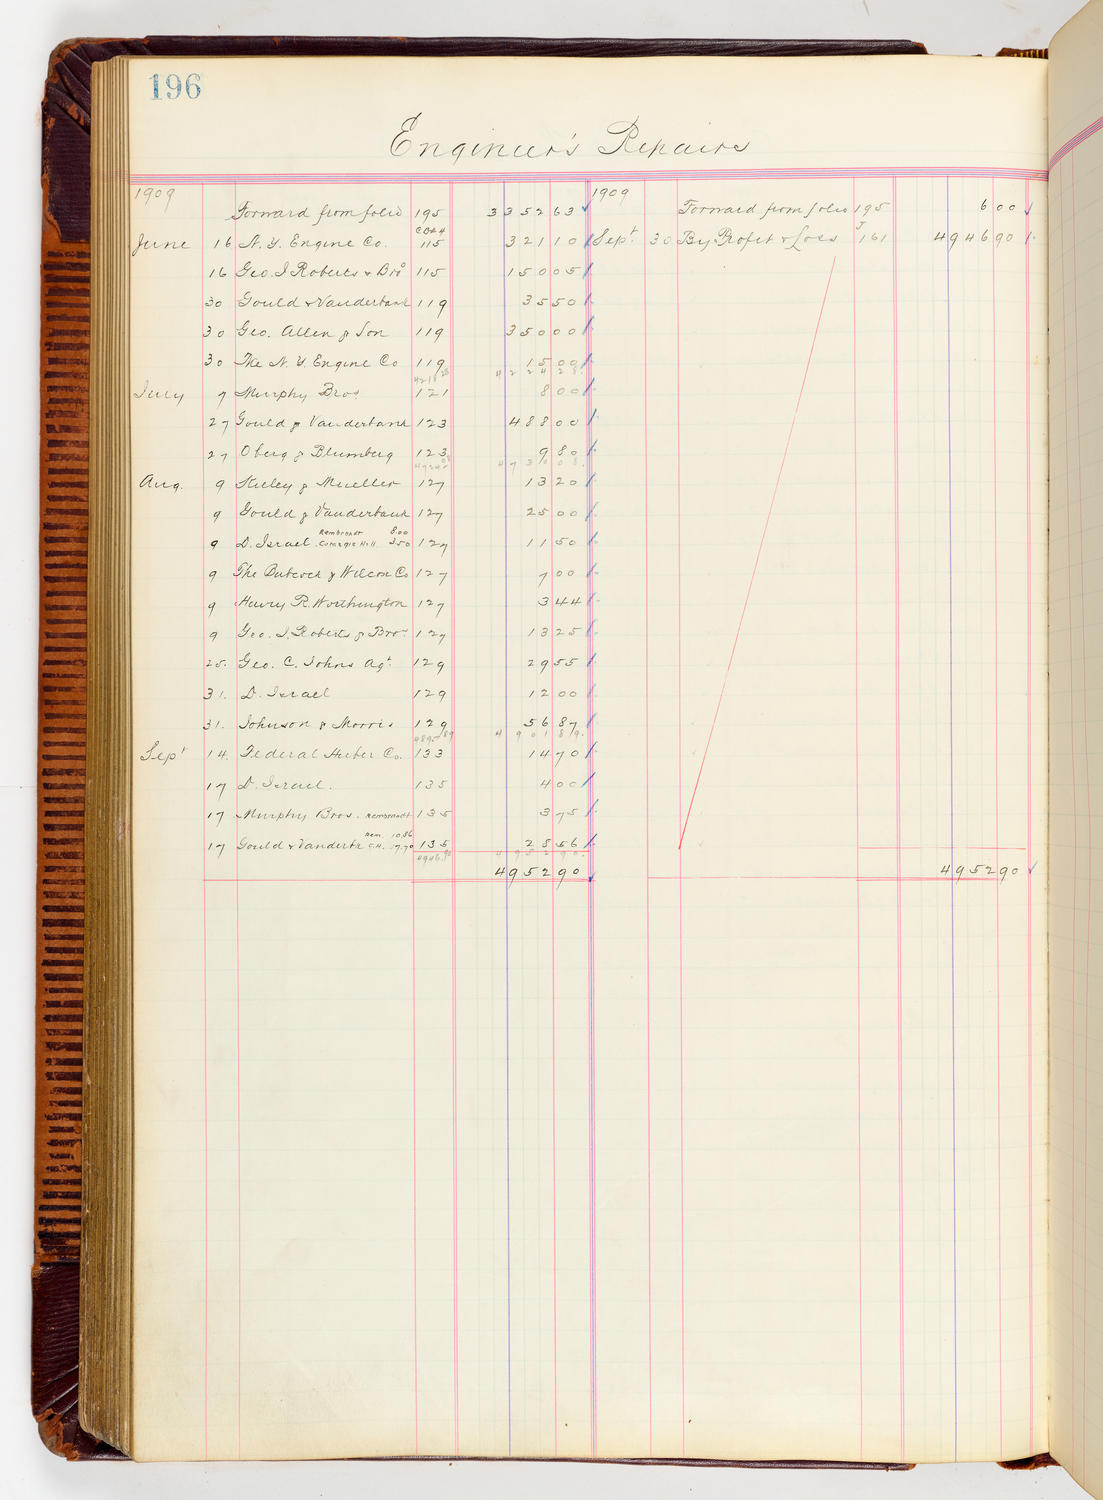 196
Engineer's Repairs
1909
Forward from folio 195 3352 63
CBk4
June 16 N. Y. Engine Co. 115 321 10
16 Geo. I Roberts & Bro 115 150 05
30 Gould & Vanderbank 119 35 50
30 Geo. Allen & Son 119 350 00
30 The N. Y. Engine Co 119 15 00
4218 28 4224 28
July 7 Murphy Bros 121 8 00
27 Gould & Vanderbank 123 488 00
27 Oberg & Blumberg 123 9 80
4724 08 4730 08
Aug. 9 & Mueller 127 13 20
9 Gould & Vanderbank 127 25 00
Rembrandt 8.00
9 D. Israel. Carnegie Hall 3.50 127 11 50
9 The Babcock & Wilcox Co 127 7 00
9 Henry R. Worthington 127 3 44
9 Geo. I. Roberts & Bros 127 13 25
25. Geo. C. Johns Agt. 129 29 55
31. D. Israel 129 12 00
31. Johnson & Morris 129 56 87
4895 89 4901 89
Sept 14. Federal Co. 133 14 70
17 D. Israel. 135 4 00
17 Murphy Bros. Rembrandt 135 3 75
Rem. 10.86
17 Gould & Vanderbk C.H. 17.70 135 28 56
4946.90 4952 90
4952 90
1909
Forward from folio 195 6 00
Sept. 30 By Profit & Loss J 161 4946 90
4952 90